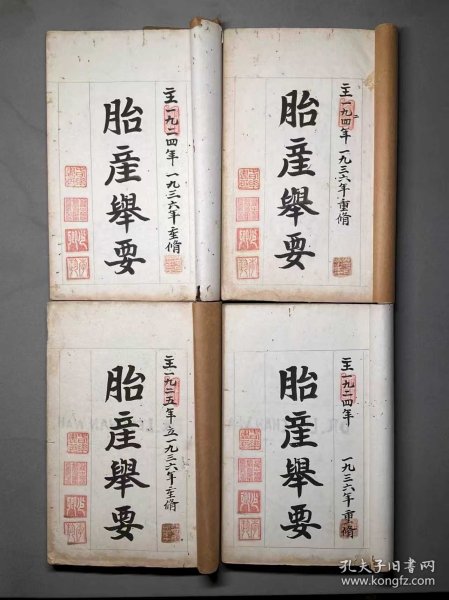 主一九二四年 一九三六年重脩
胎產舉要
主一九二四年 一九三六年重脩
胎產舉要
主一九二五年立一九三六年重脩
胎產舉要
主一九二四年 一九三六年重脩
胎產舉要
孔夫子旧书网
www.kongfz.com